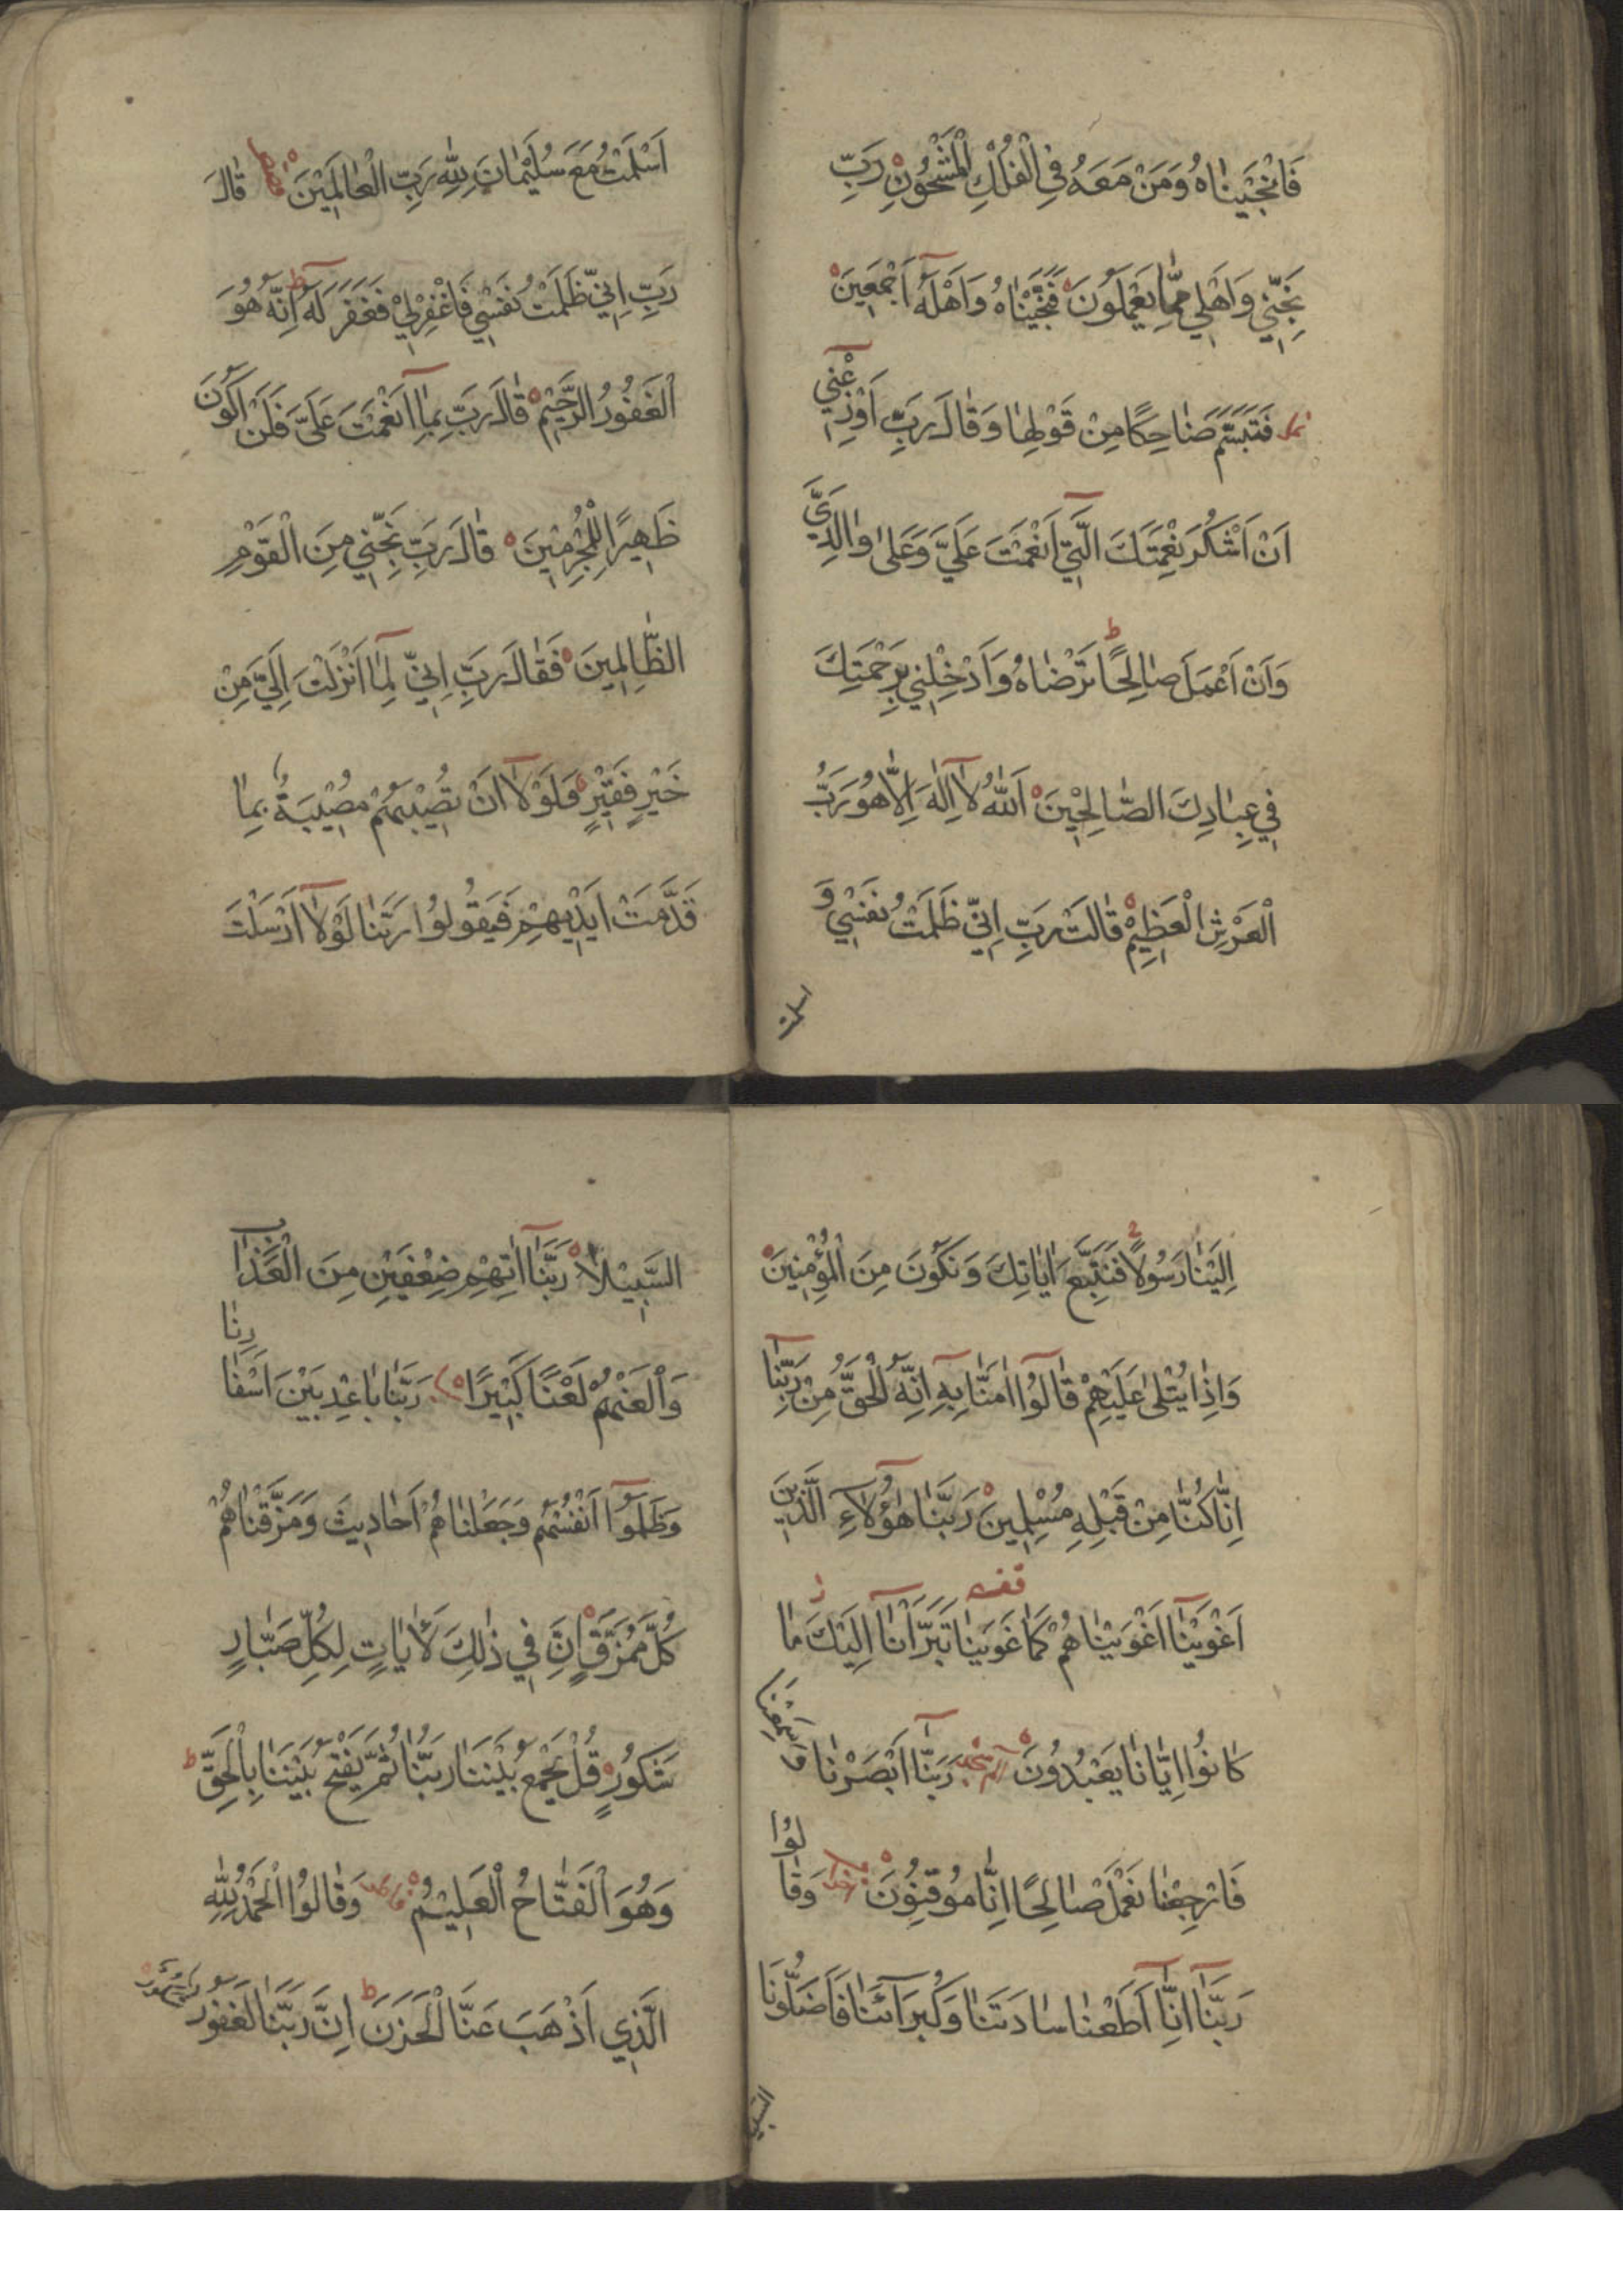 فَاَنْجَيْنَاهُ وَمَنْ مَعَهُ فِي الْفُلْكِ الْمَشْحُونِ رَبِّ
نَجِّنِي وَاَهْلِي مِمَّا يَعْمَلُونَ فَنَجَّيْنَاهُ وَاَهْلَهُ اَجْمَعِينَ
نمل فَتَبَسَّمَ ضَاحِكًا مِنْ قَوْلِهَا وَقَالَ رَبِّ اَوْزِعْنِي
اَنْ اَشْكُرَ نِعْمَتَكَ الَّتِي اَنْعَمْتَ عَلَيَّ وَعَلَى وَالِدَيَّ
وَاَنْ اَعْمَلَ صَالِحًا تَرْضَاهُ وَاَدْخِلْنِي بِرَحْمَتِكَ
فِي عِبَادِكَ الصَّالِحِيْنَ اَللّٰهُ لَا اِلٰهَ اِلَّا هُوَ رَبُّ
الْعَرْشِ الْعَظِيمِ قَالَتْ رَبِّ اِنِّي ظَلَمْتُ نَفْسِي وَ
اسلمت
اَسْلَمْتُ مَعَ سُلَيْمَانَ لِلّٰهِ رَبِّ الْعَالَمِيْنَ قصص قَالَ
رَبِّ اِنِّي ظَلَمْتُ نَفْسِي فَاغْفِرْلِي فَغَفَرَ لَهُ ط اِنَّهُ هُوَ
الْغَفُورُ الرَّحِيْمُ قَالَ رَبِّ بِمَا اَنْعَمْتَ عَلَيَّ فَلَنْ اَكُونَ
ظَهِيرًا لِلْمُجْرِمِينَ قَالَ رَبِّ نَجِّنِي مِنَ الْقَوْمِ
الظَّالِمِينَ فَقَالَ رَبِّ اِنِّي لِمَا اَنْزَلْتَ اِلَيَّ مِنْ
خَيْرٍ فَقِيْرٌ وَلَوْلَا اَنْ تُصِيْبَهُمْ مُصِيْبَةٌ بِمَا
قَدَّمَتْ اَيْدِيْهِمْ فَيَقُولُوا رَبَّنَا لَوْلَا اَرْسَلْتَ
اِلَيْنَا رَسُولًا فَنَتَّبِعَ اٰيَاتِكَ وَنَكُونَ مِنَ الْمُؤْمِنِينَ
وَاِذَا يُتْلٰى عَلَيْهِمْ قَالُوا اٰمَنَّا بِهِ اِنَّهُ الْحَقُّ مِنْ رَبِّنَا
اِنَّا كُنَّا مِنْ قَبْلِهِ مُسْلِمِينَ رَبَّنَا هٰؤُلَاءِ الَّذِينَ
اَغْوَيْنَا اَغْوَيْنَاهُمْ كَمَا غَوَيْنَا تَبَرَّأْنَا اِلَيْكَ مَا
كَانُوا اِيَّانَا يَعْبُدُونَ رَبَّنَا اَبْصَرْنَا وَسَمِعْنَا
فَارْجِعْنَا نَعْمَلْ صَالِحًا اِنَّا مُوقِنُونَ وَقَالُوا
رَبَّنَا اِنَّا اَطَعْنَا سَادَتَنَا وَكُبَرَاءَنَا فَاَضَلُّونَا
السبيلا
السَّبِيْلَا رَبَّنَا اٰتِهِمْ ضِعْفَيْنِ مِنَ الْعَذَابِ
وَالْعَنْهُمْ لَعْنًا كَبِيْرًا رَبَّنَا بَاعِدْ بَيْنَ اَسْفَارِنَا
وَظَلَمُوا اَنْفُسَهُمْ وَجَعَلْنَاهُمْ اَحَادِيثَ وَمَزَّقْنَاهُمْ
كُلَّ مُمَزَّقٍ اِنَّ فِي ذٰلِكَ لَاٰيَاتٍ لِكُلِّ صَبَّارٍ
شَكُورٍ قُلْ يَجْمَعُ بَيْنَنَا رَبُّنَا ثُمَّ يَفْتَحُ بَيْنَنَا بِالْحَقِّ ط
وَهُوَ الْفَتَّاحُ الْعَلِيْمُ فاطر وَقَالُوا الْحَمْدُ لِلّٰهِ
الَّذِي اَذْهَبَ عَنَّا الْحَزَنَ ط اِنَّ رَبَّنَا لَغَفُورٌ شَكُورٌ